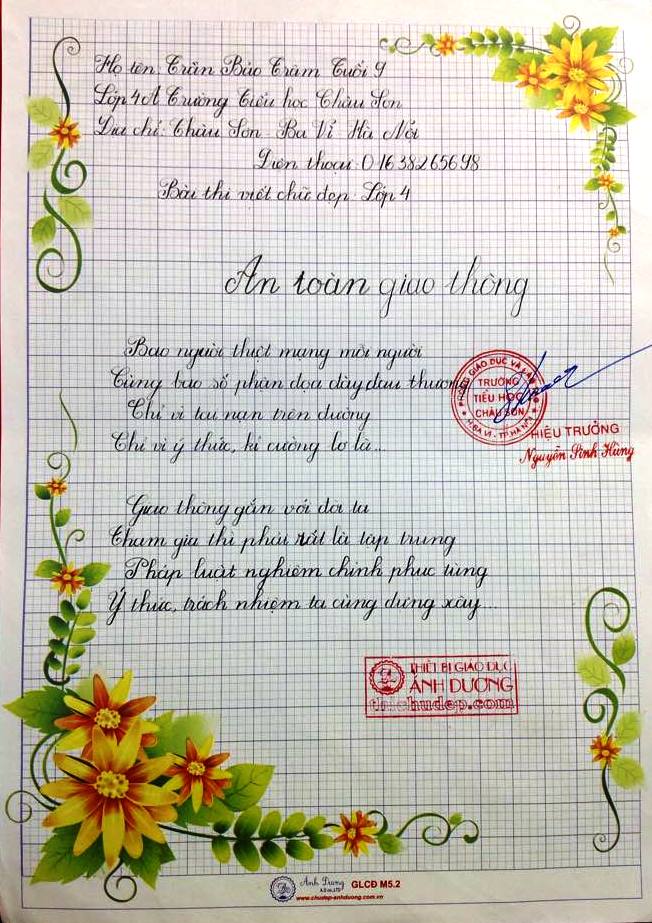 Họ tên: Trần Bảo Trâm Tuổi 9
Lớp 4A Trường Tiểu học Châu Sơn
Địa chỉ: Châu Sơn - Ba Vì Hà Nội
Điện thoại: 01638265698
Bài thi viết chữ đẹp Lớp 4
An toàn giao thông
Bao người thiệt mạng mỗi người
Cùng bao số phận đọa đày đau thương
Chỉ vì tai nạn trên đường
Chỉ vì ý thức, kỉ cương lơ là...
PHÒNG GIÁO DỤC VÀ ĐÀO
TRƯỜNG
TIỂU HỌC
CHÂU SƠN
H.BA VÌ - TP HÀ NỘI
HIỆU TRƯỞNG
Nguyễn Sinh Hùng
Giao thông gắn với đời ta
Tham gia thì phải rất là tập trung
Pháp luật nghiêm chỉnh phục tùng
Ý thức, trách nhiệm ta cùng dựng xây...
THIẾT BỊ GIÁO DỤC
ÁNH DƯƠNG
thichudep.com
Ánh Dương
GLCĐ M5.2
www.chudep-anhduong.com.vn